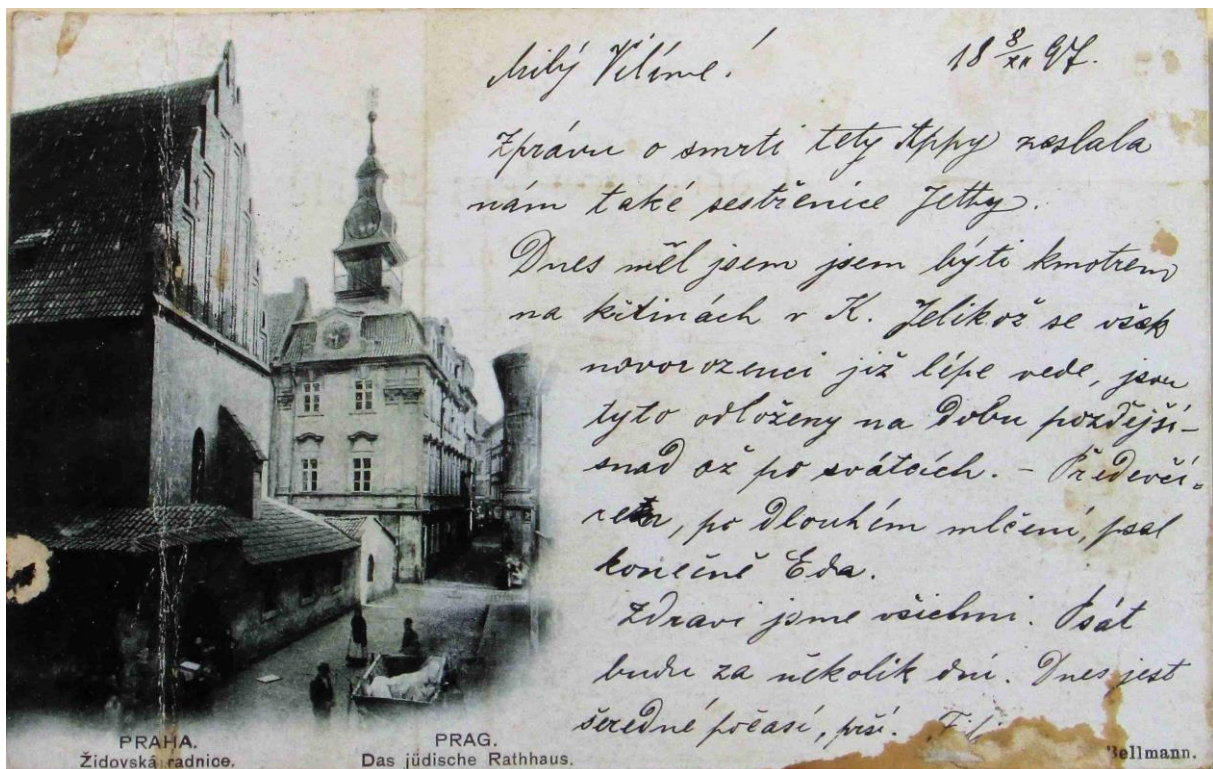 Milý Vilíme!
18 8/XII 97.
Zprávu o smrti tety Appy zaslala
nám také sestřenice Jetty.
Dnes měl jsem jsem býti kmotrem
na křtinách v K. Jelikož se však
novorozenci již lépe vede, jsou
tyto odloženy na dobu pozdější –
snad až po svátcích. – Předevčí-
rem, po dlouhém mlčení, psal
konečně Eda.
Zdravi jsme všichni. Psát
budu za několik dní. Dnes jest
šeredné počasí, prší.
PRAHA.
Židovská radnice.
PRAG.
Das jüdische Rathhaus.
Bellmann.